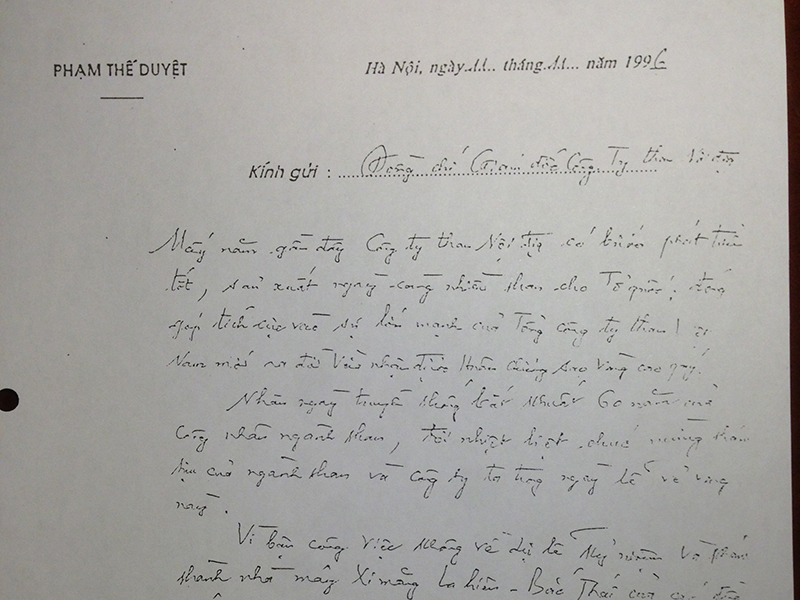 PHẠM THẾ DUYỆT
Hà Nội, ngày 11 tháng 11 năm 1996
Kính gửi : Đồng chí Giám đốc Công Ty than Nội địa
Mấy năm gần đây Công ty than Nội địa có bước phát triển
tốt, sản xuất ngày càng nhiều than cho Tổ quốc, đóng
góp tích cực vào sự lớn mạnh của Tổng công ty than Việt
Nam mới ra đời vừa nhận được Huân chương sao vàng cao quý.
Nhân ngày truyền thống bất khuất 60 năm của
công nhân ngành than, tôi nhiệt liệt chúc mừng thân
của ngành than và công ty ta trong ngày lễ vẻ vang
này.
Vì bận công việc không về dự lễ kỷ niệm và khánh
thành nhà máy Xi măng La hiên - Bắc Thái của các đồng